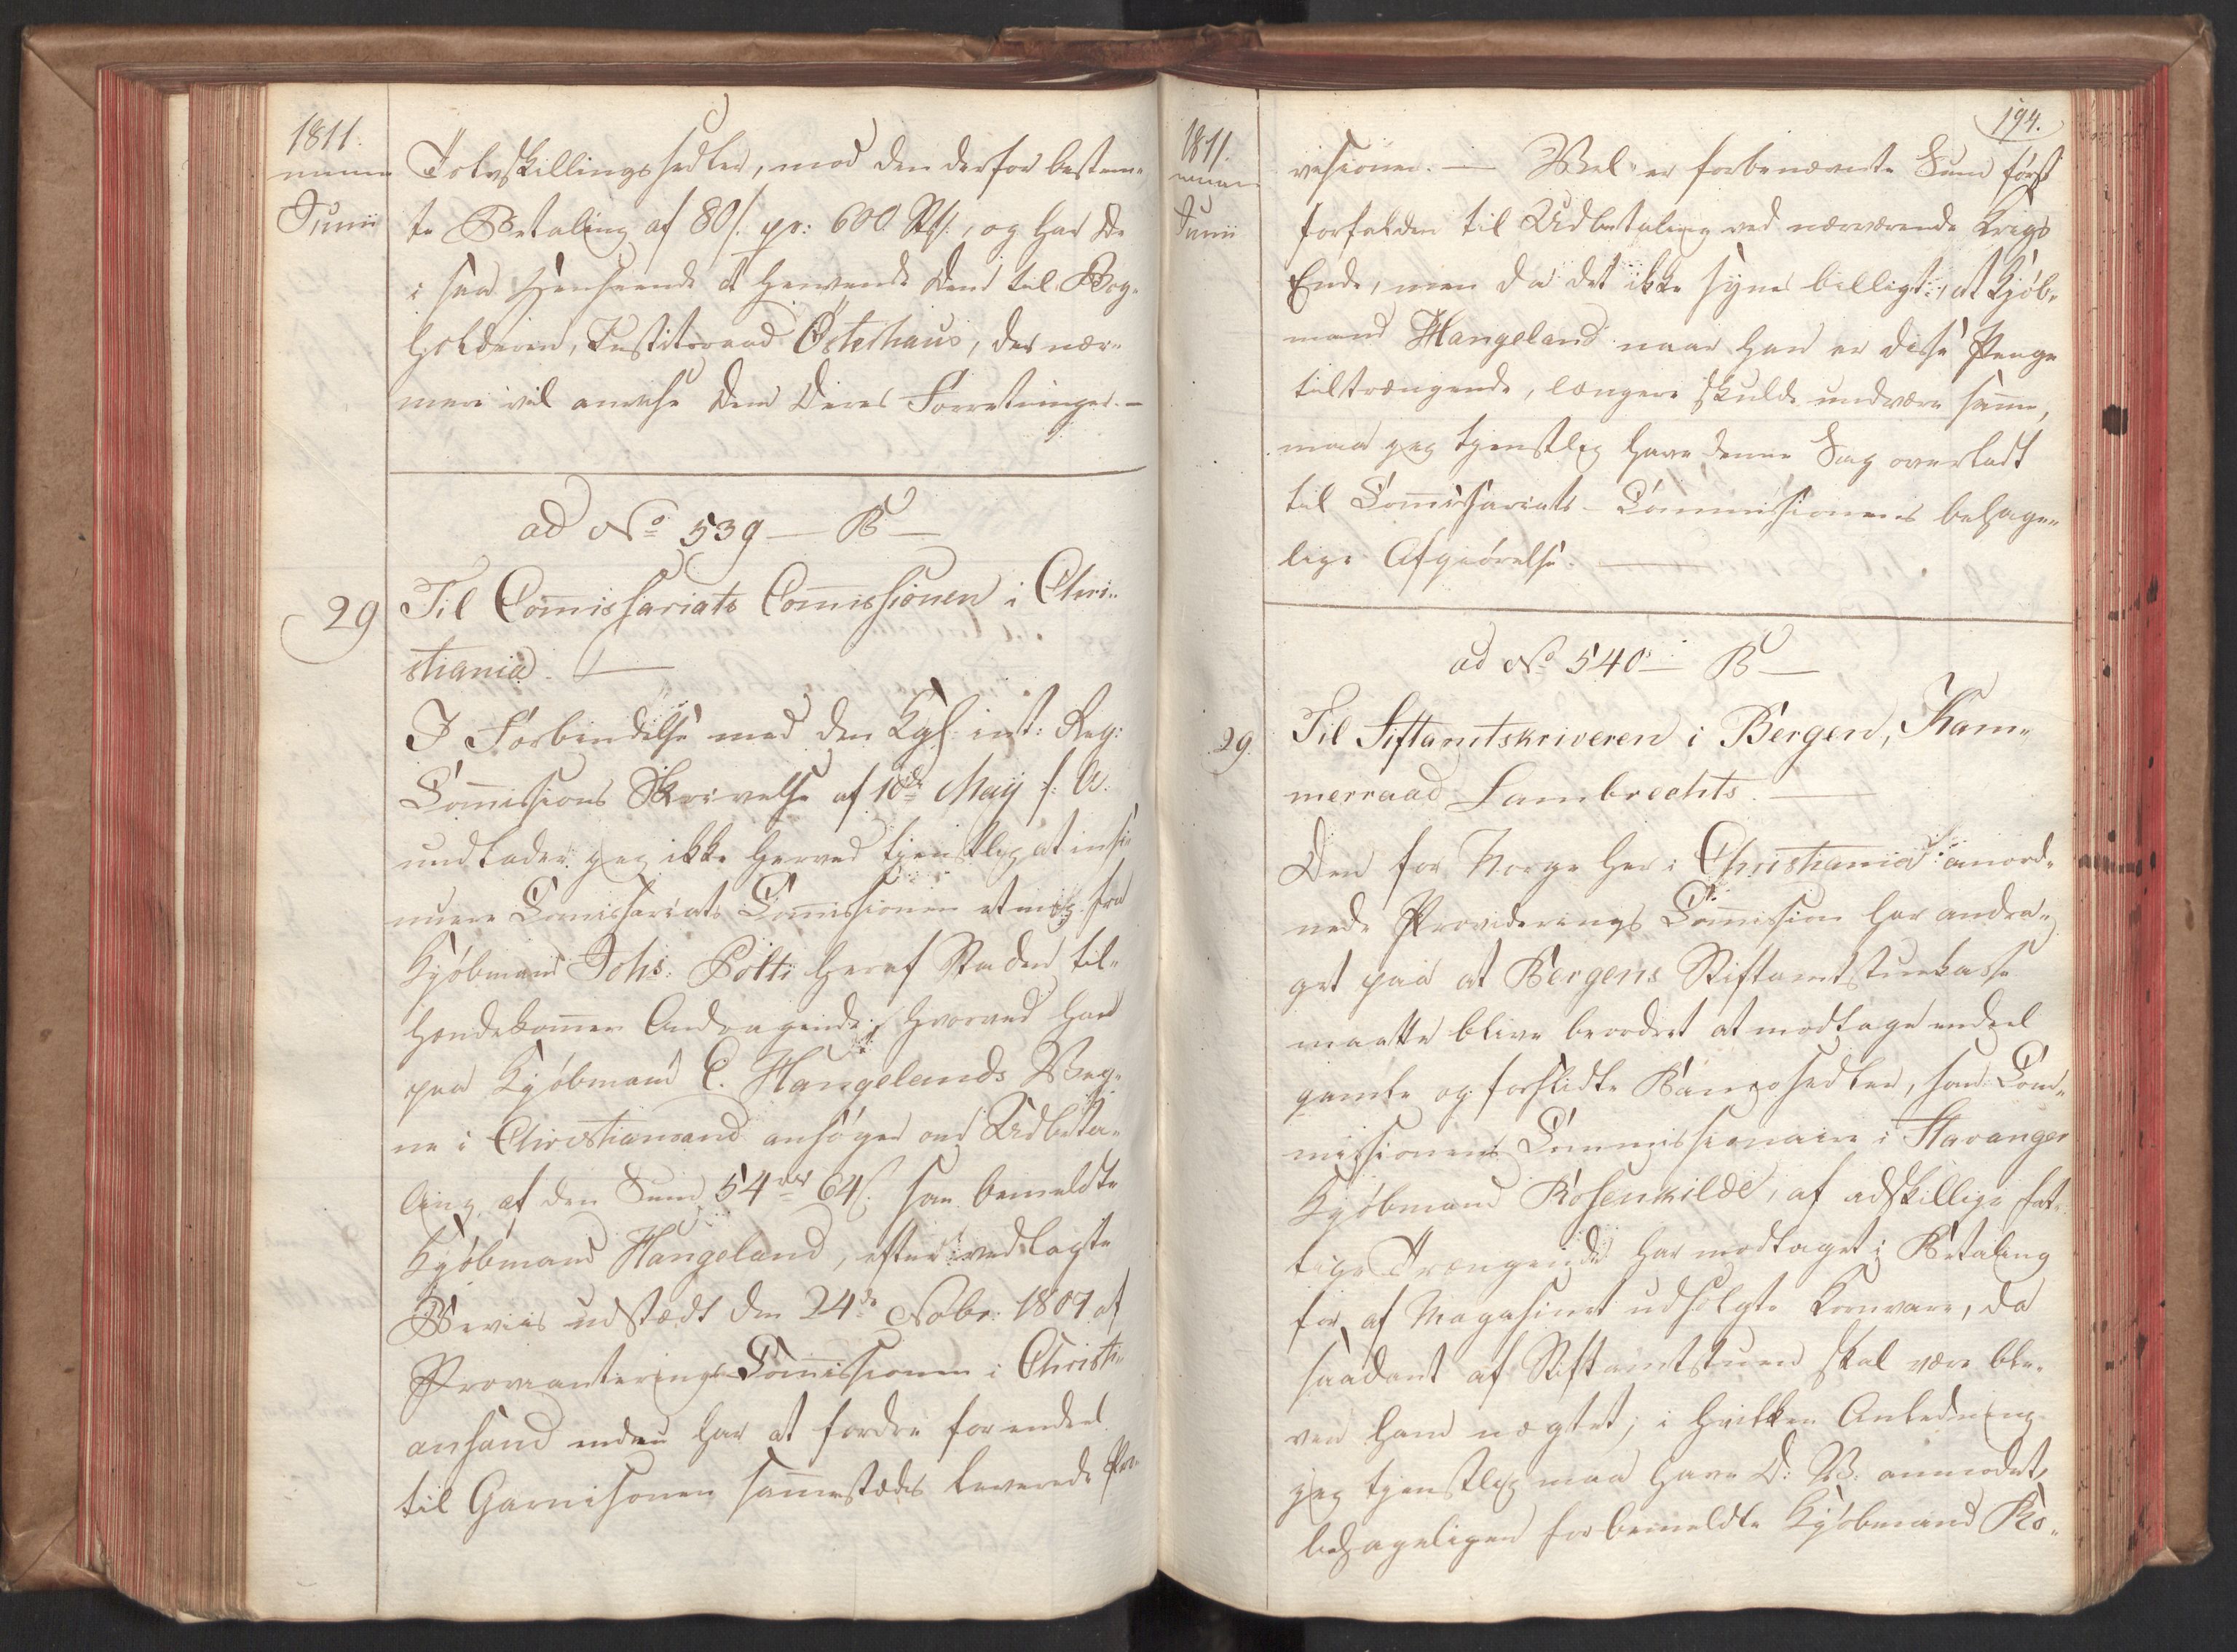 1811.
Junii
Tolvskillingssedler, mod den derfor bestem„
te Betaling af 80 s. pr: 600 Rd:, og har De
i saa Henseende at henvende Dem til Bog„
holderen, Justitsraad Østerhaus, der nær„
mere vil anvise Dem Deres Forretninger. —
ad No 539 — B —
29
Til Com̄issariats Com̄issionen i Chri„
stiania. —
I Forbindelse med den Kgl: int: Reg:
Com̄issions Skrivelse af 10de Maij f: A.
undlader jeg ikke herved tjenstlig at insi„
nuere Com̄issariats Com̄issionen et mig fra
Kjøbmand Johs: Pøltz heraf Staden til„
hændekom̄en Andragende, hvorved han
paa Kjøbmand C. Hangelands Veg„
ne i Christiansand ansøger om Udbeta„
ling af den Sum 54 rdr 64 s. som bemeldte
Kjøbmand Hangeland, efter vedlagte
Beviis udstædt den 24de Nobr: 1807 af
Provianterings Com̄issionen i Christi„
ansand endnu har at fordre for endeel
til Garnisonen sam̄estæds leverede Pro„
194.
1811.
Junii
visioner. — Vel er forbenævnte Sum først
forfalden til Udbetaling ved nærværende Krigs
Ende, men da det ikke synes billigt, at Kjøb„
mand Hangeland naar han er disse Penge
tiltrængende, længere skulde undvære sam̄e,
maa jeg tjenstlig have denne Sag overladt
til Com̄issariats-Commissionens behage„
lige Afgiørelse. —
ad No 540 — B —
29.
Til Stiftamtskriveren i Bergen, Kam„
merraad Lambrechts. —
Den for Norge her i Christiania anord„
nede Providerings Com̄ission har andra„
get paa at Bergens Stiftamtstuekasse
maatte blive beordret at modtage endeel
gamle og forslidte Bancosedler, som Com„
missionens Commissionaire i Stavanger
Kjøbmand Rosenkilde, af adskillige fat„
tige Trængende har modtaget i Betaling
for af Magasinet udsolgte Kornvare, da
saadant af Stiftamtstuen skal være ble„
ven ham nægtet; i hvilken Anledning
jeg tjenstlig maa have D: V: anmodet,
behageligen for bemeldte Kjøbmand Ro„